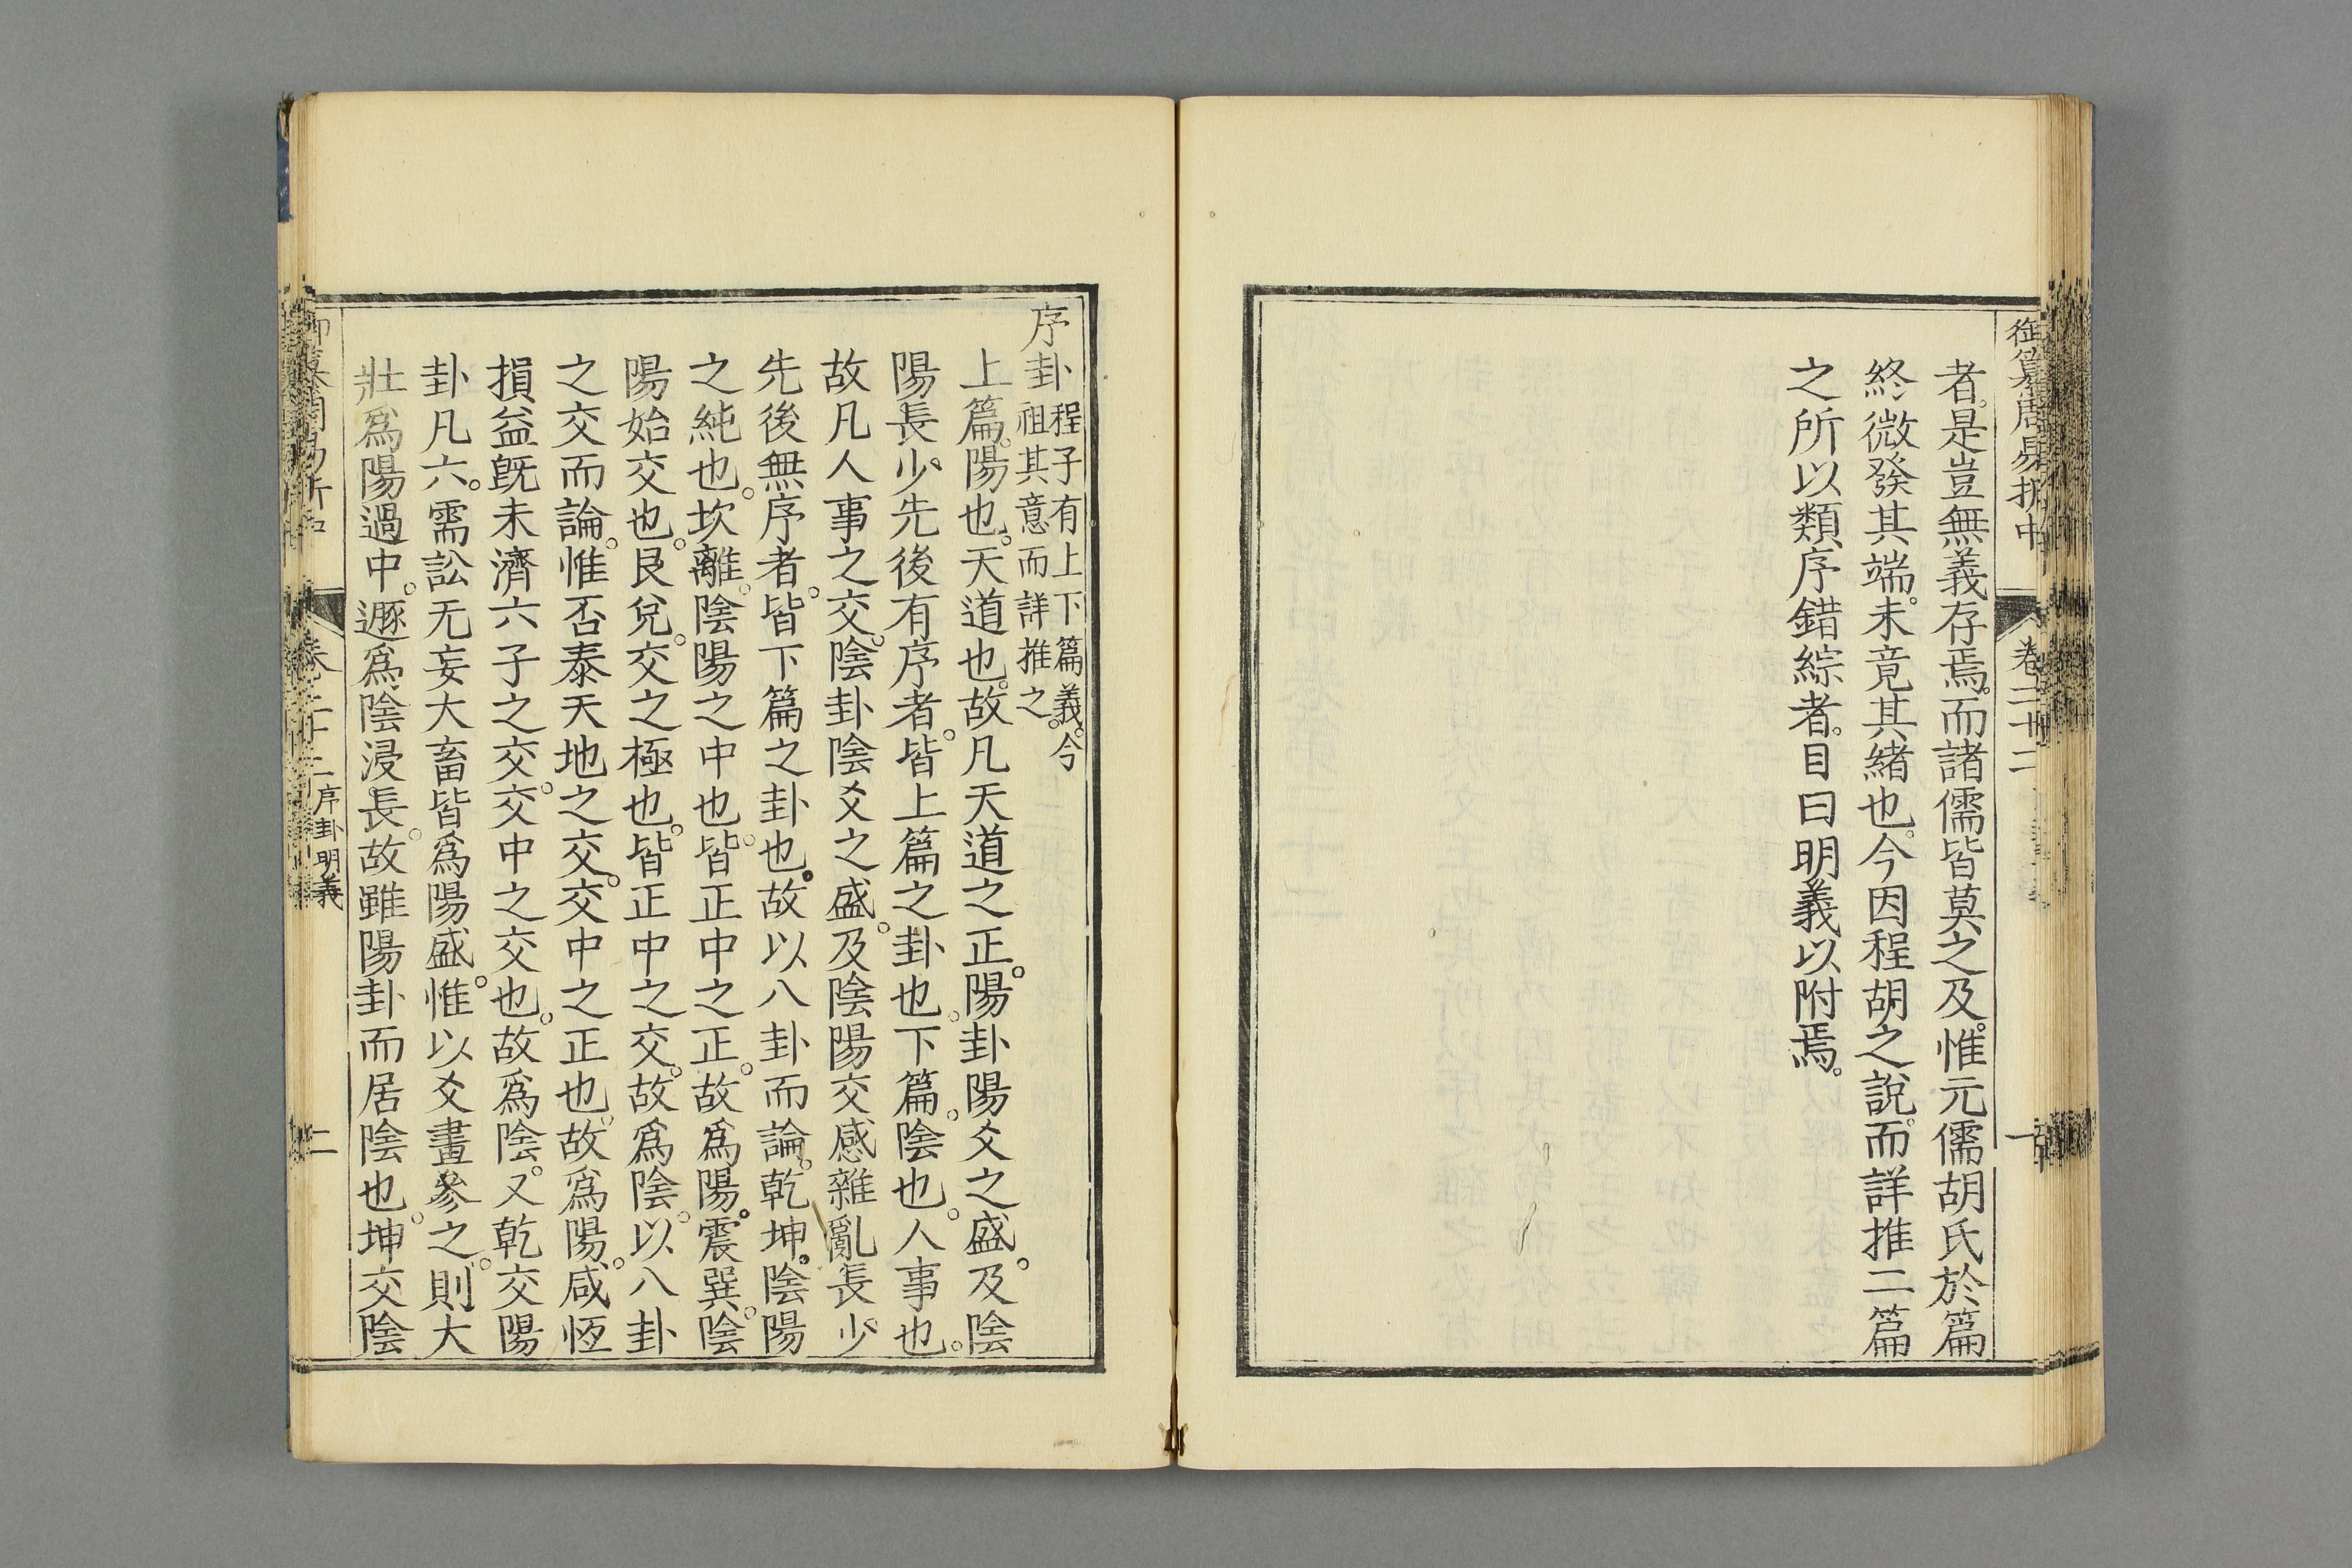 御纂周易折中
卷二十二
一
者。是豈無義存焉。而諸儒皆莫之及。惟元儒胡氏於篇
終微發其端。未竟其緒也。今因程胡之說。而詳推二篇
之所以類序錯綜者。目曰明義以附焉。
序卦 程子有上下篇義。今
祖其意而詳推之。
上篇。陽也。天道也。故凡天道之正。陽卦陽爻之盛。及陰
陽長少。先後有序者。皆上篇之卦也。下篇。陰也。人事也。
故凡人事之交。陰卦陰爻之盛。及陰陽交感雜亂長少。
先後無序者。皆下篇之卦也。故以八卦而論。乾坤。陰陽
之純也。坎離。陰陽之中也。皆正中之正。故為陽。震巽。陰
陽始交也。艮兌。交之極也。皆正中之交。故為陰。以八卦
之交而論。惟否泰天地之交。交中之正也。故為陽。咸恆
損益旣未濟六子之交。交中之交也。故為陰。又乾交陽
卦凡六。需訟无妄大畜皆為陽盛。惟以爻畫參之。則大
壯為陽過中。遯為陰浸長。故雖陽卦而居陰也。坤交陰
御纂周易折中
卷二十二
序卦明義
二